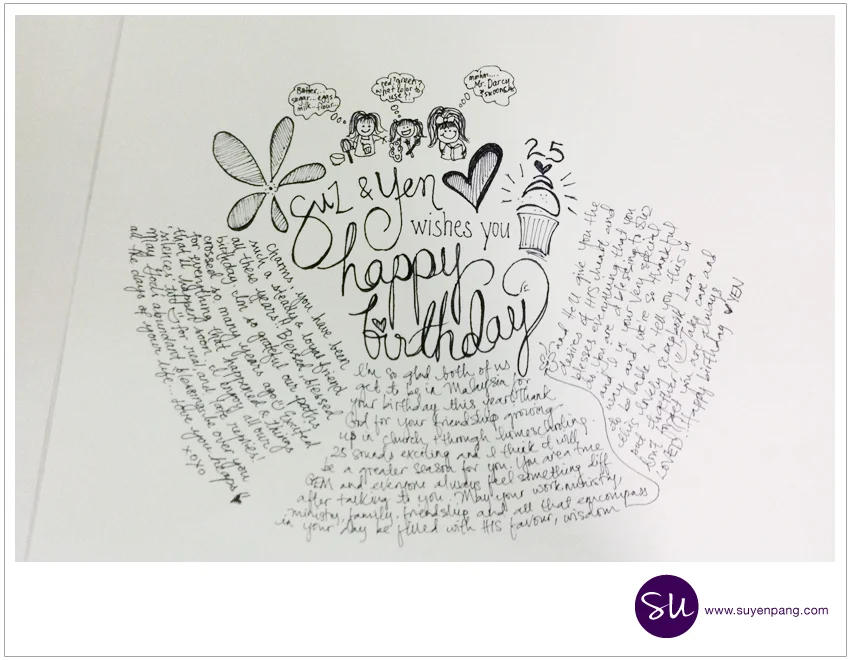 Butter...
sugar... eggs
milk... flour...
red? green?
what color to
use?!
mmhm....
Mr. Darcy
25
Suz & Yen
wishes you
happy
birthday
Charms, you have been
such a steady & loyal friend
all these years!! Blessed, blessed
birthday. I'm so grateful our paths
crossed so many years ago. Excited
for everything that happened & things
that'll happen soon. I enjoy all our
silences, for real and
May God's abundant blessings be over you
all the days of your life. Love you heaps!!
xoxo
I'm so glad both of us
get to be in Malaysia for
your birthday this year! Thank
God for your friendship growing
up in church, through homeschooling
25 sounds exciting and I think it will
be a greater season for you. You are a true
GEM and everyone always feel something diff
after talking to you. May your work, ministry,
ministry, family, friendship and all that encompass
in your day be filled with HIS favour, wisdom
and to give you the
desires of HIS heart and
blesses everything that you
do. You are a blessing to SU
and I in your very special
way and we're so thankful
to be able to tell you this in
this lovely scrapbook Lara
put together. Take care and
don't forget you are always
LOVED! Happy birthday YEN
SU
www.suyenpang.com